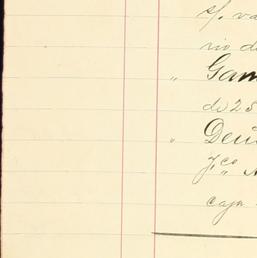 s/. va
rio d
" Gam
de 25
" Deu
Fco
caja